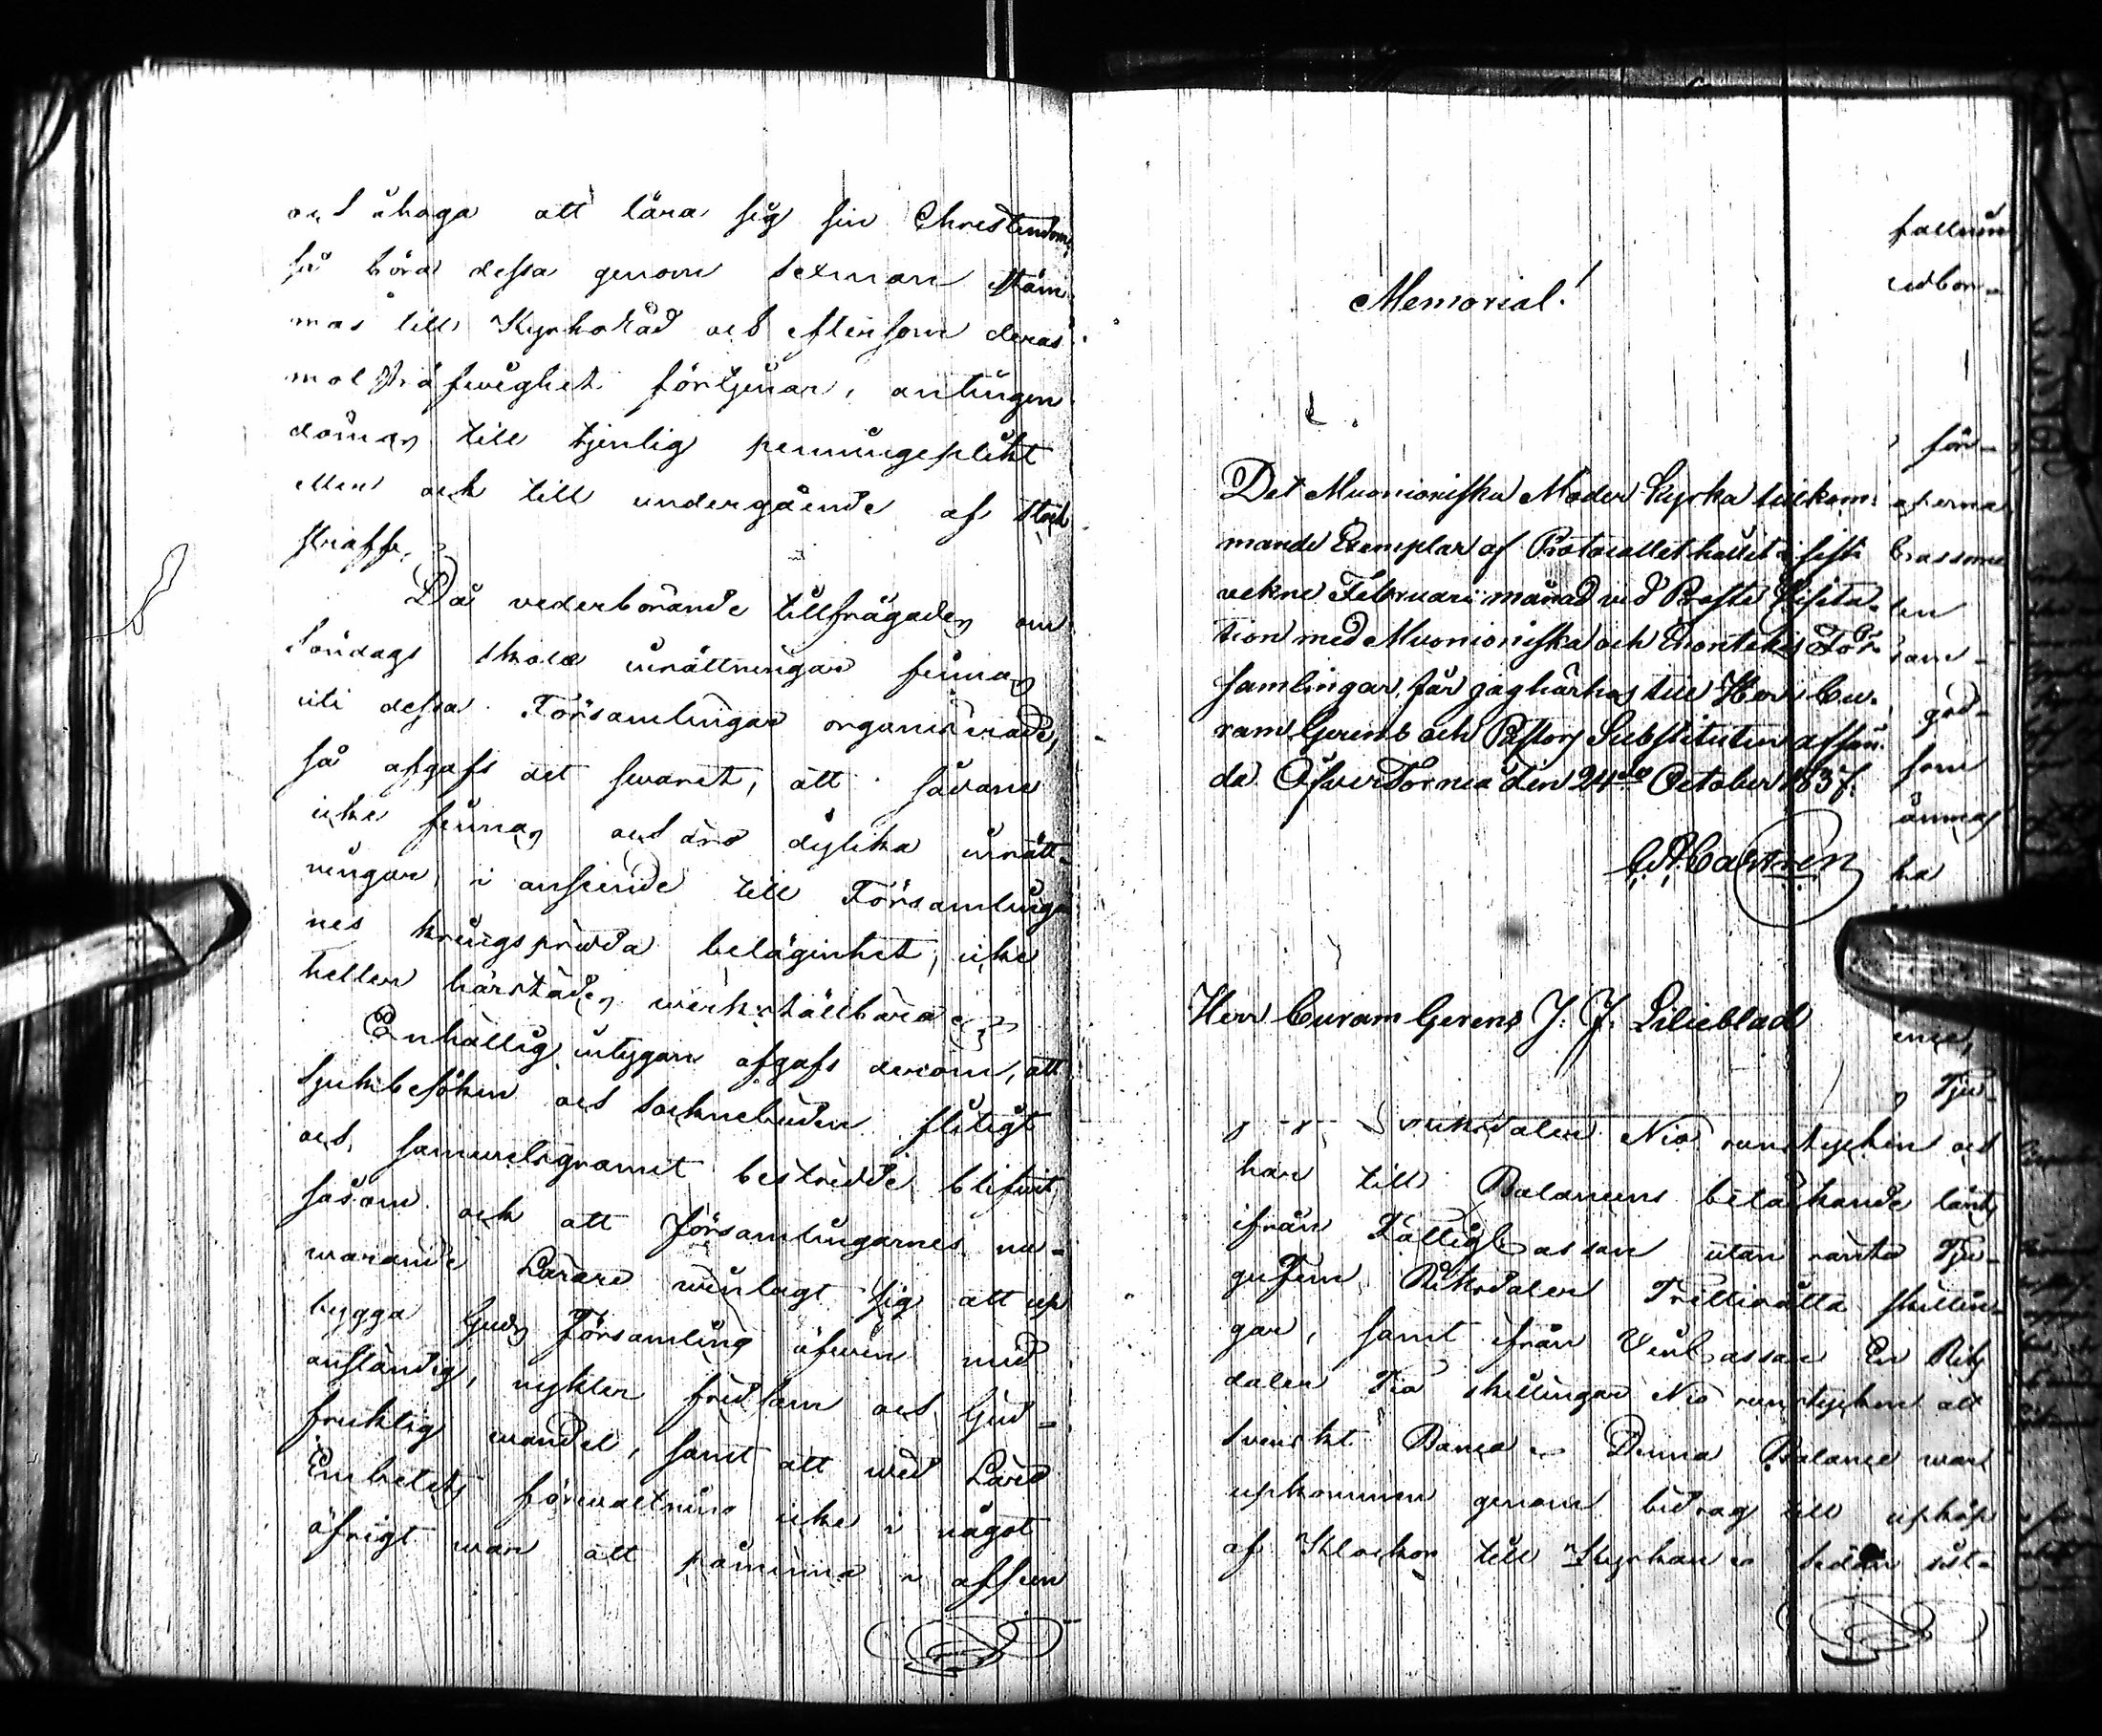 och åhoga att lära sig sin Christendom,
så böra dessa genom Sexman stäm-
mas till Kyrkoråd och eftersom deras
motsträfwighet förtjenar, antingen
dömas till tjenlig penningeplikt
eller ock till undergående af stock
straffe.
Då vederbörande tillfrågades om
Söndags Skole inrättningar finnas
uti dessa Församlingar organiserade,
så afgafs det swaret, att sådane
icke finnas och äro dylika inrätt-
ningar, i anseende till Församlingar-
nes kringspridda belägenhet, icke
heller härstädes werkställbara
Enhällig intygan afgafs derom, att
sjukbesöken och socknebuden flitigt
och samwetsgrannt bestridde blifwit,
såsom ock att Församlingarnes nu-
warande Lärare winlagt sig att up
bygga Guds Församling äfwen med
anständig, nykter fridsam och Gud-
fruktig wandel, samt att wid Läro
Embetets förwaltning icke i något
öfrigt war att påminna i afseen
Memorial!
Det Muonioniska Moder Kyrka tillkom-
mande Exemplar af Protocollet hållet i sist-
vekne Februari månad wid Prosts Visita-
tion med Muonioniska och Enontekis För-
samlingar, får jag härhos till Herr Cu-
ram Gerens och Pastors Substituten afsän-
da. ÖfverTorneå den 24de October 1837.
Castren
Herr Curam Gerens J. J. Lilieblad
riksdaler Nio runstycken och
har till Balancens betäckande lånts
ifrån FattigCassan utan ränta Tju-
guFem Riksdaler Trettioåtta skillin-
gar, samt ifrån VinCassan En Riks
daler Tio skillingar Nio runstycken allt
Svenskt Banco. Denna Balance war
upkommen genom bidrag till uphöp
af Klockor till Kyrkan sedan sist-
fallnin
för-
Crassom
len
sam-
god-
som
ämnas
ka
Tju-